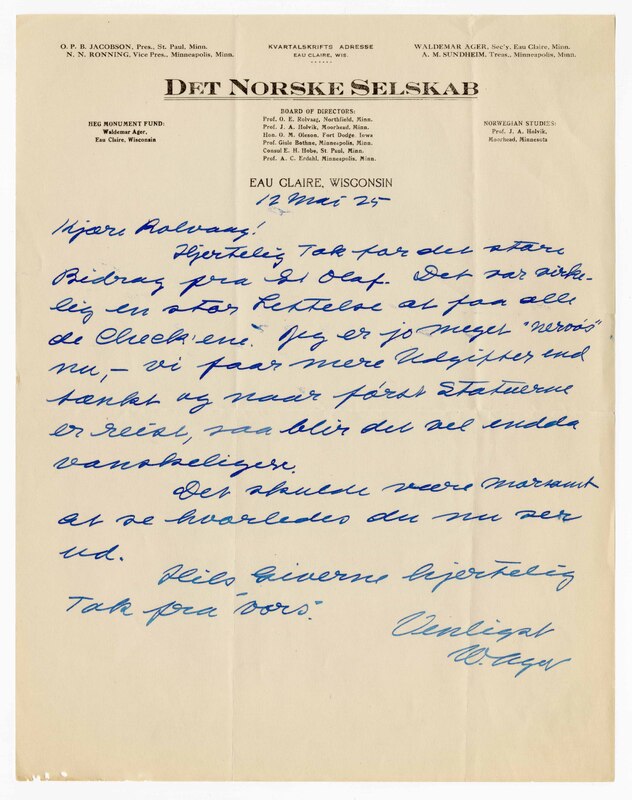 O. P. B. JACOBSON, Pres., St. Paul, Minn.
N. N. RONNING, Vice Pres., Minneapolis, Minn.
KVARTALSKRIFTS ADRESSE
EAU CLAIRE, WIS.
WALDEMAR AGER, Sec'y, Eau Claire, Minn.
A. M. SUNDHEIM, Treas., Minneapolis, Minn.
DET NORSKE SELSKAB
HEG MONUMENT FUND:
Waldemar Ager,
Eau Claire, Wisconsin
BOARD OF DIRECTORS:
Prof. O. E. Rolvaag, Northfield, Minn.
Prof. J. A. Holvik, Moorhead, Minn.
Hon. O. M. Oleson, Fort Dodge, Iowa
Prof. Gisle Bothne, Minneapolis, Minn.
Consul E. H. Hobe, St. Paul, Minn.
Prof. A. C. Erdahl, Minneapolis, Minn.
NORWEGIAN STUDIES:
Prof. J. A. Holvik,
Moorhead, Minnesota
EAU CLAIRE, WISCONSIN
12 Mai 25
Kjære Rolvaag!
Hjertelig Tak for det store
Bidrag fra St Olaf. Det var virke-
lig en stor Lettelse at faa alle
de Check'ene. Jeg er jo meget "nervøs"
nu, – vi faar mere Udgifter end
tænkt og naar først Statuerne
er reist, saa blir det vel endda
vanskeligere.
Det skulde være morsomt
at se hvorledes du nu ser
ud.
Hils Giverne hjertelig
Tak fra "vors".
Venligst
W. Ager